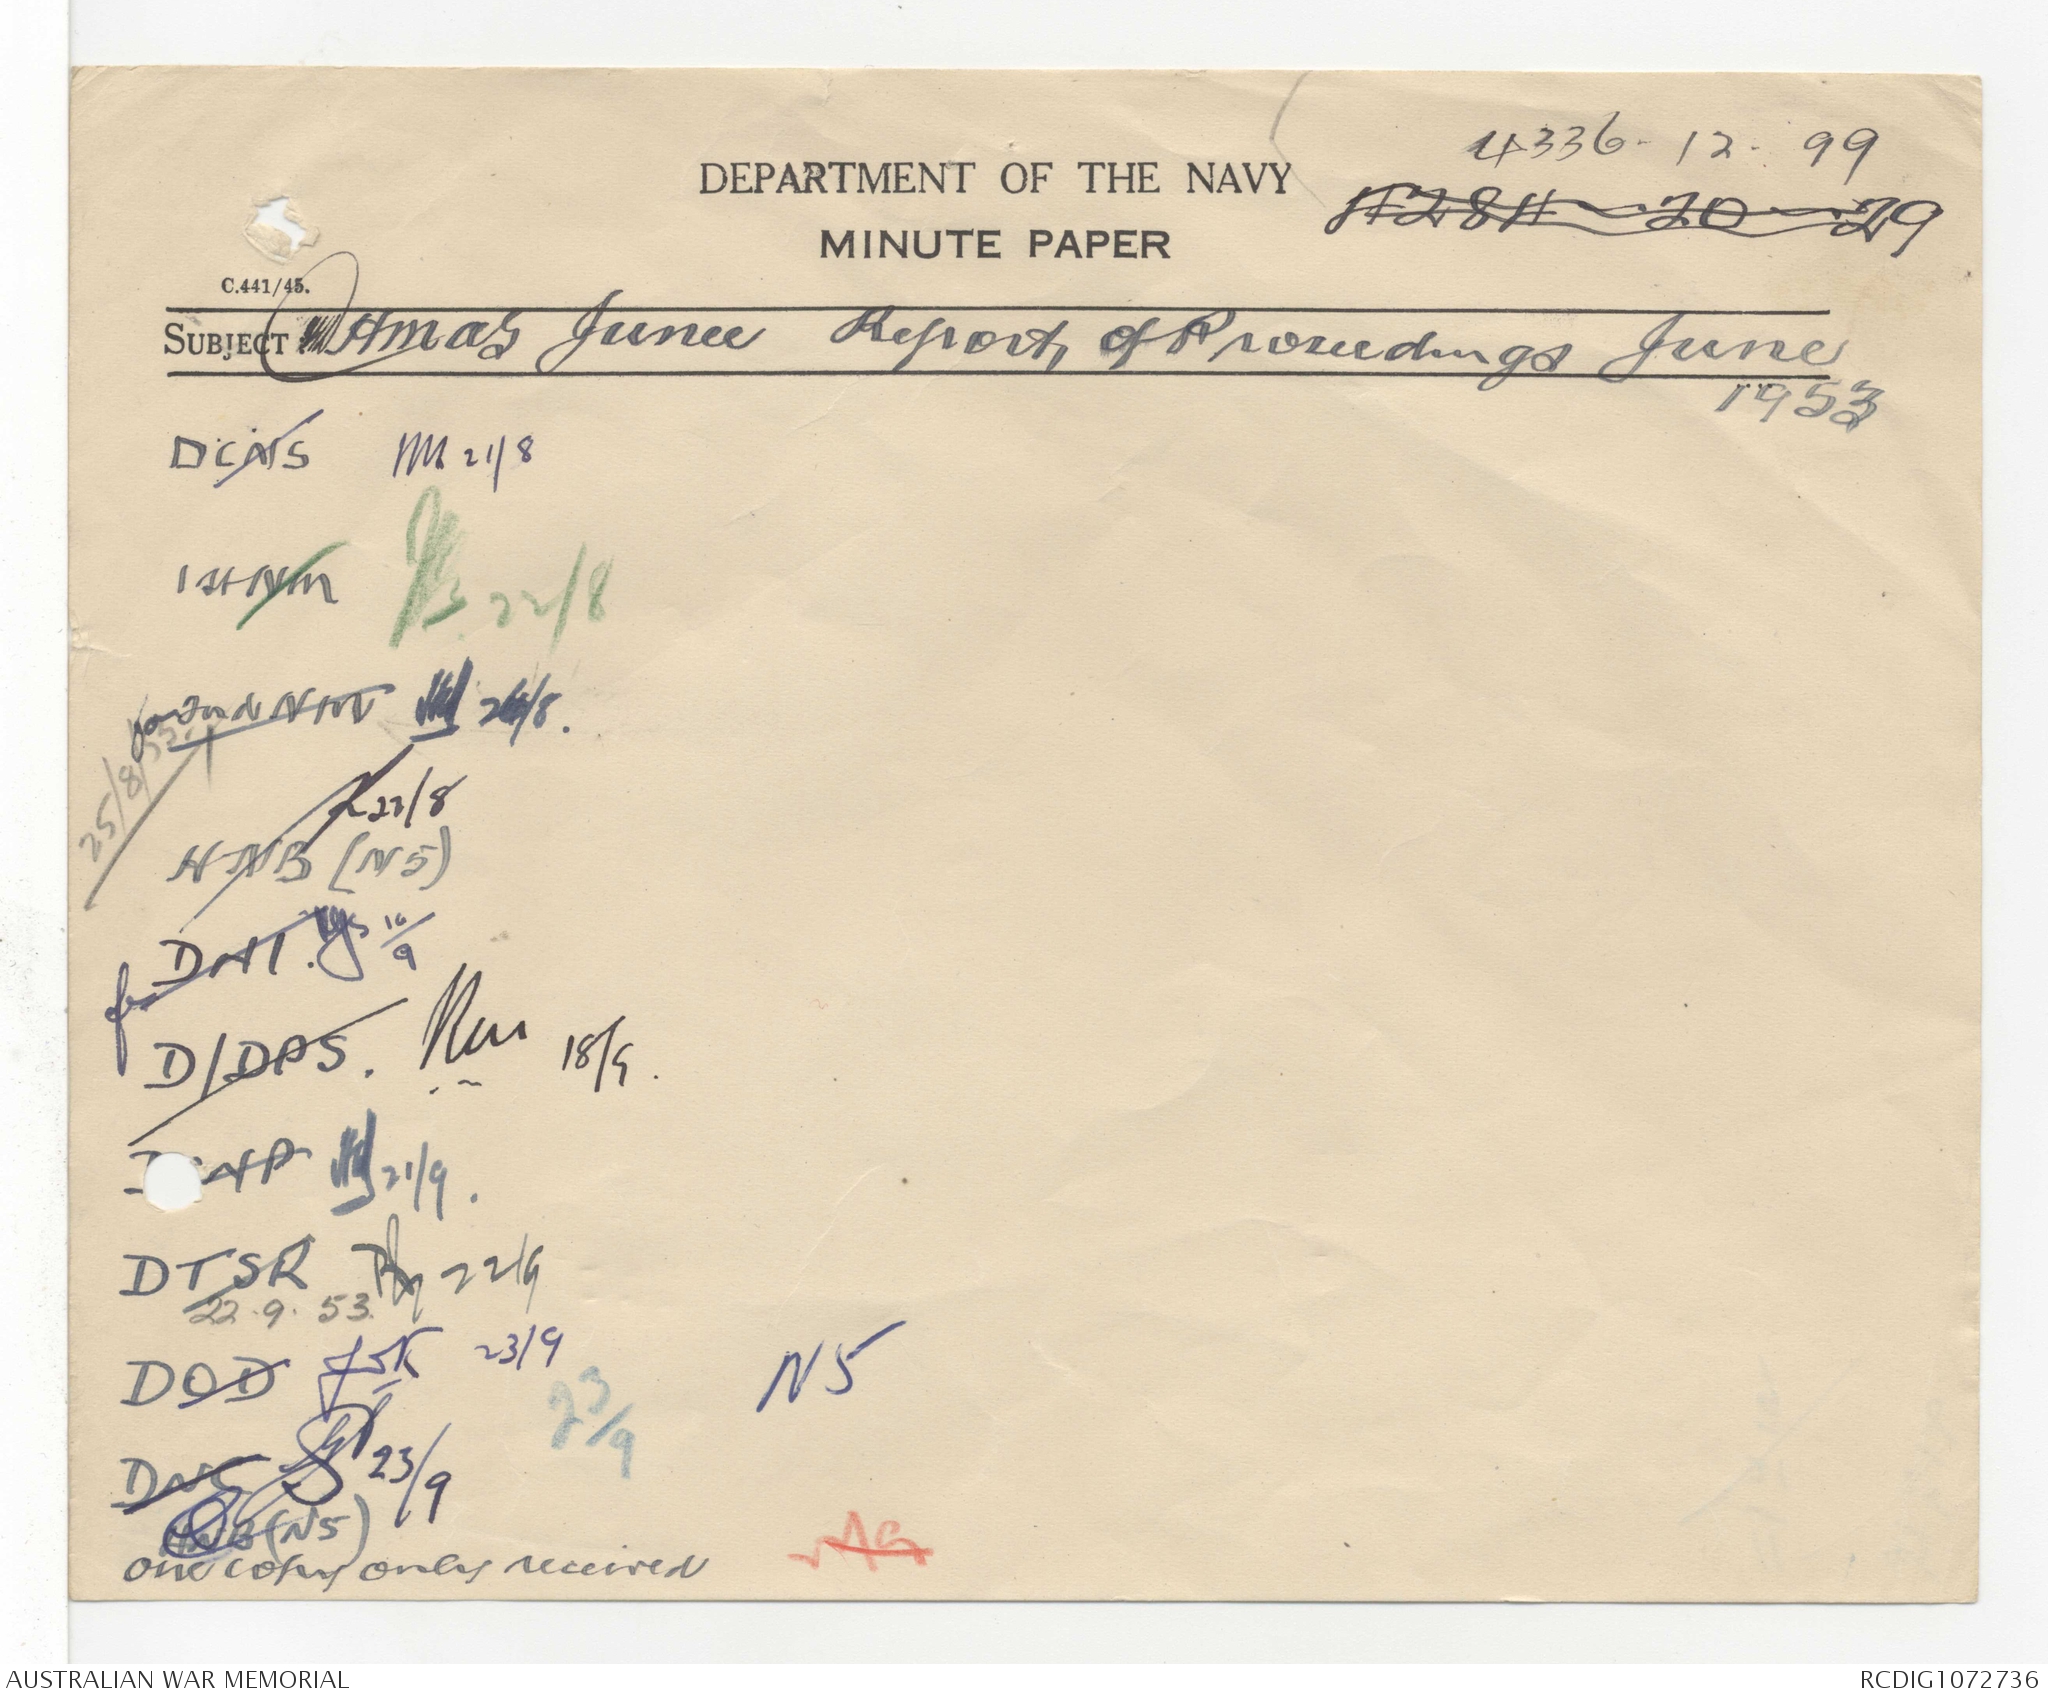 4336-12-99
DEPARTMENT OF THE NAVY
4284-20-29
MINUTE PAPER
C.441/45.
SUBJECT HMAS Junee Report of Proceedings June
1953
DCNS 21/8
22/8
for 2nd NM 26/8.
25/8/53.
22/8
HNB (N5)
DNI. 16/9
for
D/DPS. 18/9.
21/9.
DTSR 22/9
22.9.53.
DOD 23/9
23/9
N5
23/9
HNB (N5)
one copy only received
AG
AUSTRALIAN WAR MEMORIAL
RCDIG1072736